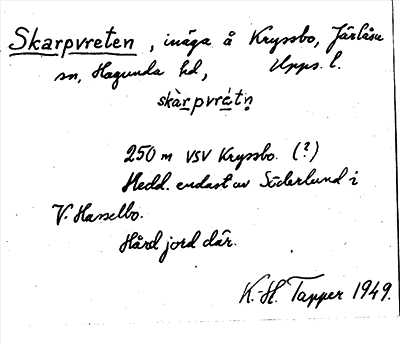 Skarpvreten, inäga å Kryssbo, Järlåsa
sn, Hagunda hd, Upps. l.
skàrpvrétṇ
250 m VSV Kryssbo. (?)
Medd. endast av Söderlund i
V. Hasselbo.
Hård jord där.
K.-H. Tapper 1949.